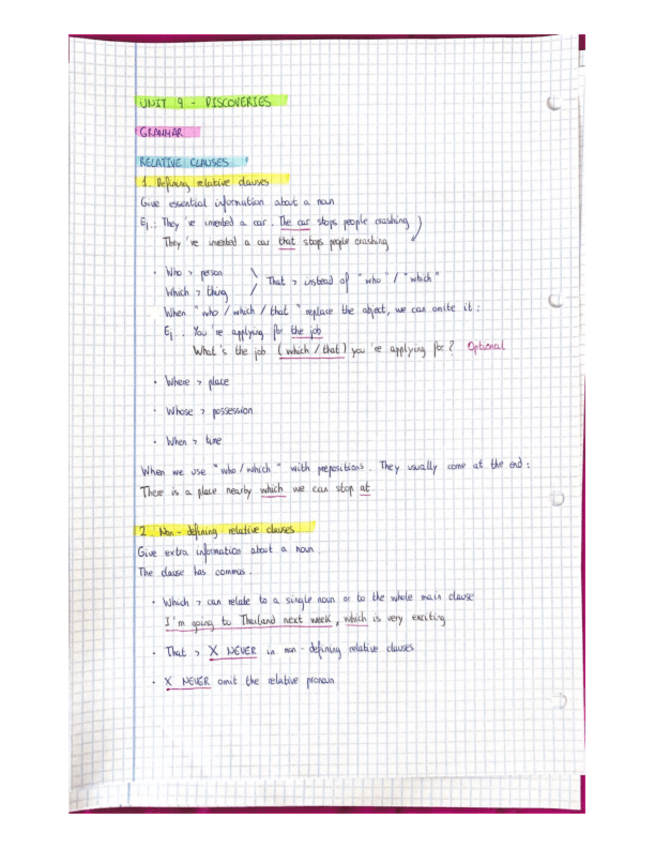 UNIT 9 - DISCOVERIES
GRAMMAR
RELATIVE CLAUSES
1. Defining relative clauses
Give essential information about a noun
Ej.: They 've invented a car. The car stops people crashing
They 've invented a car that stops people crashing
· Who > person
Which > thing
That > instead of "who" / "which"
When "who / which / that" replace the object, we can omite it:
Ej.: You 're applying for the job
What 's the job (which / that) you 're applying for? Optional
· Where > place
· Whose > possession
· When > time
When we use "who / which" with prepositions. They usually come at the end:
There is a place nearby which we can stop at
2. Non - defining relative clauses
Give extra information about a noun
The clause has commas.
· Which > can relate to a single noun or to the whole main clause
I'm going to Thailand next week, which is very exciting
· That > X NEVER in non - defining relative clauses
· X NEVER omit the relative pronoun